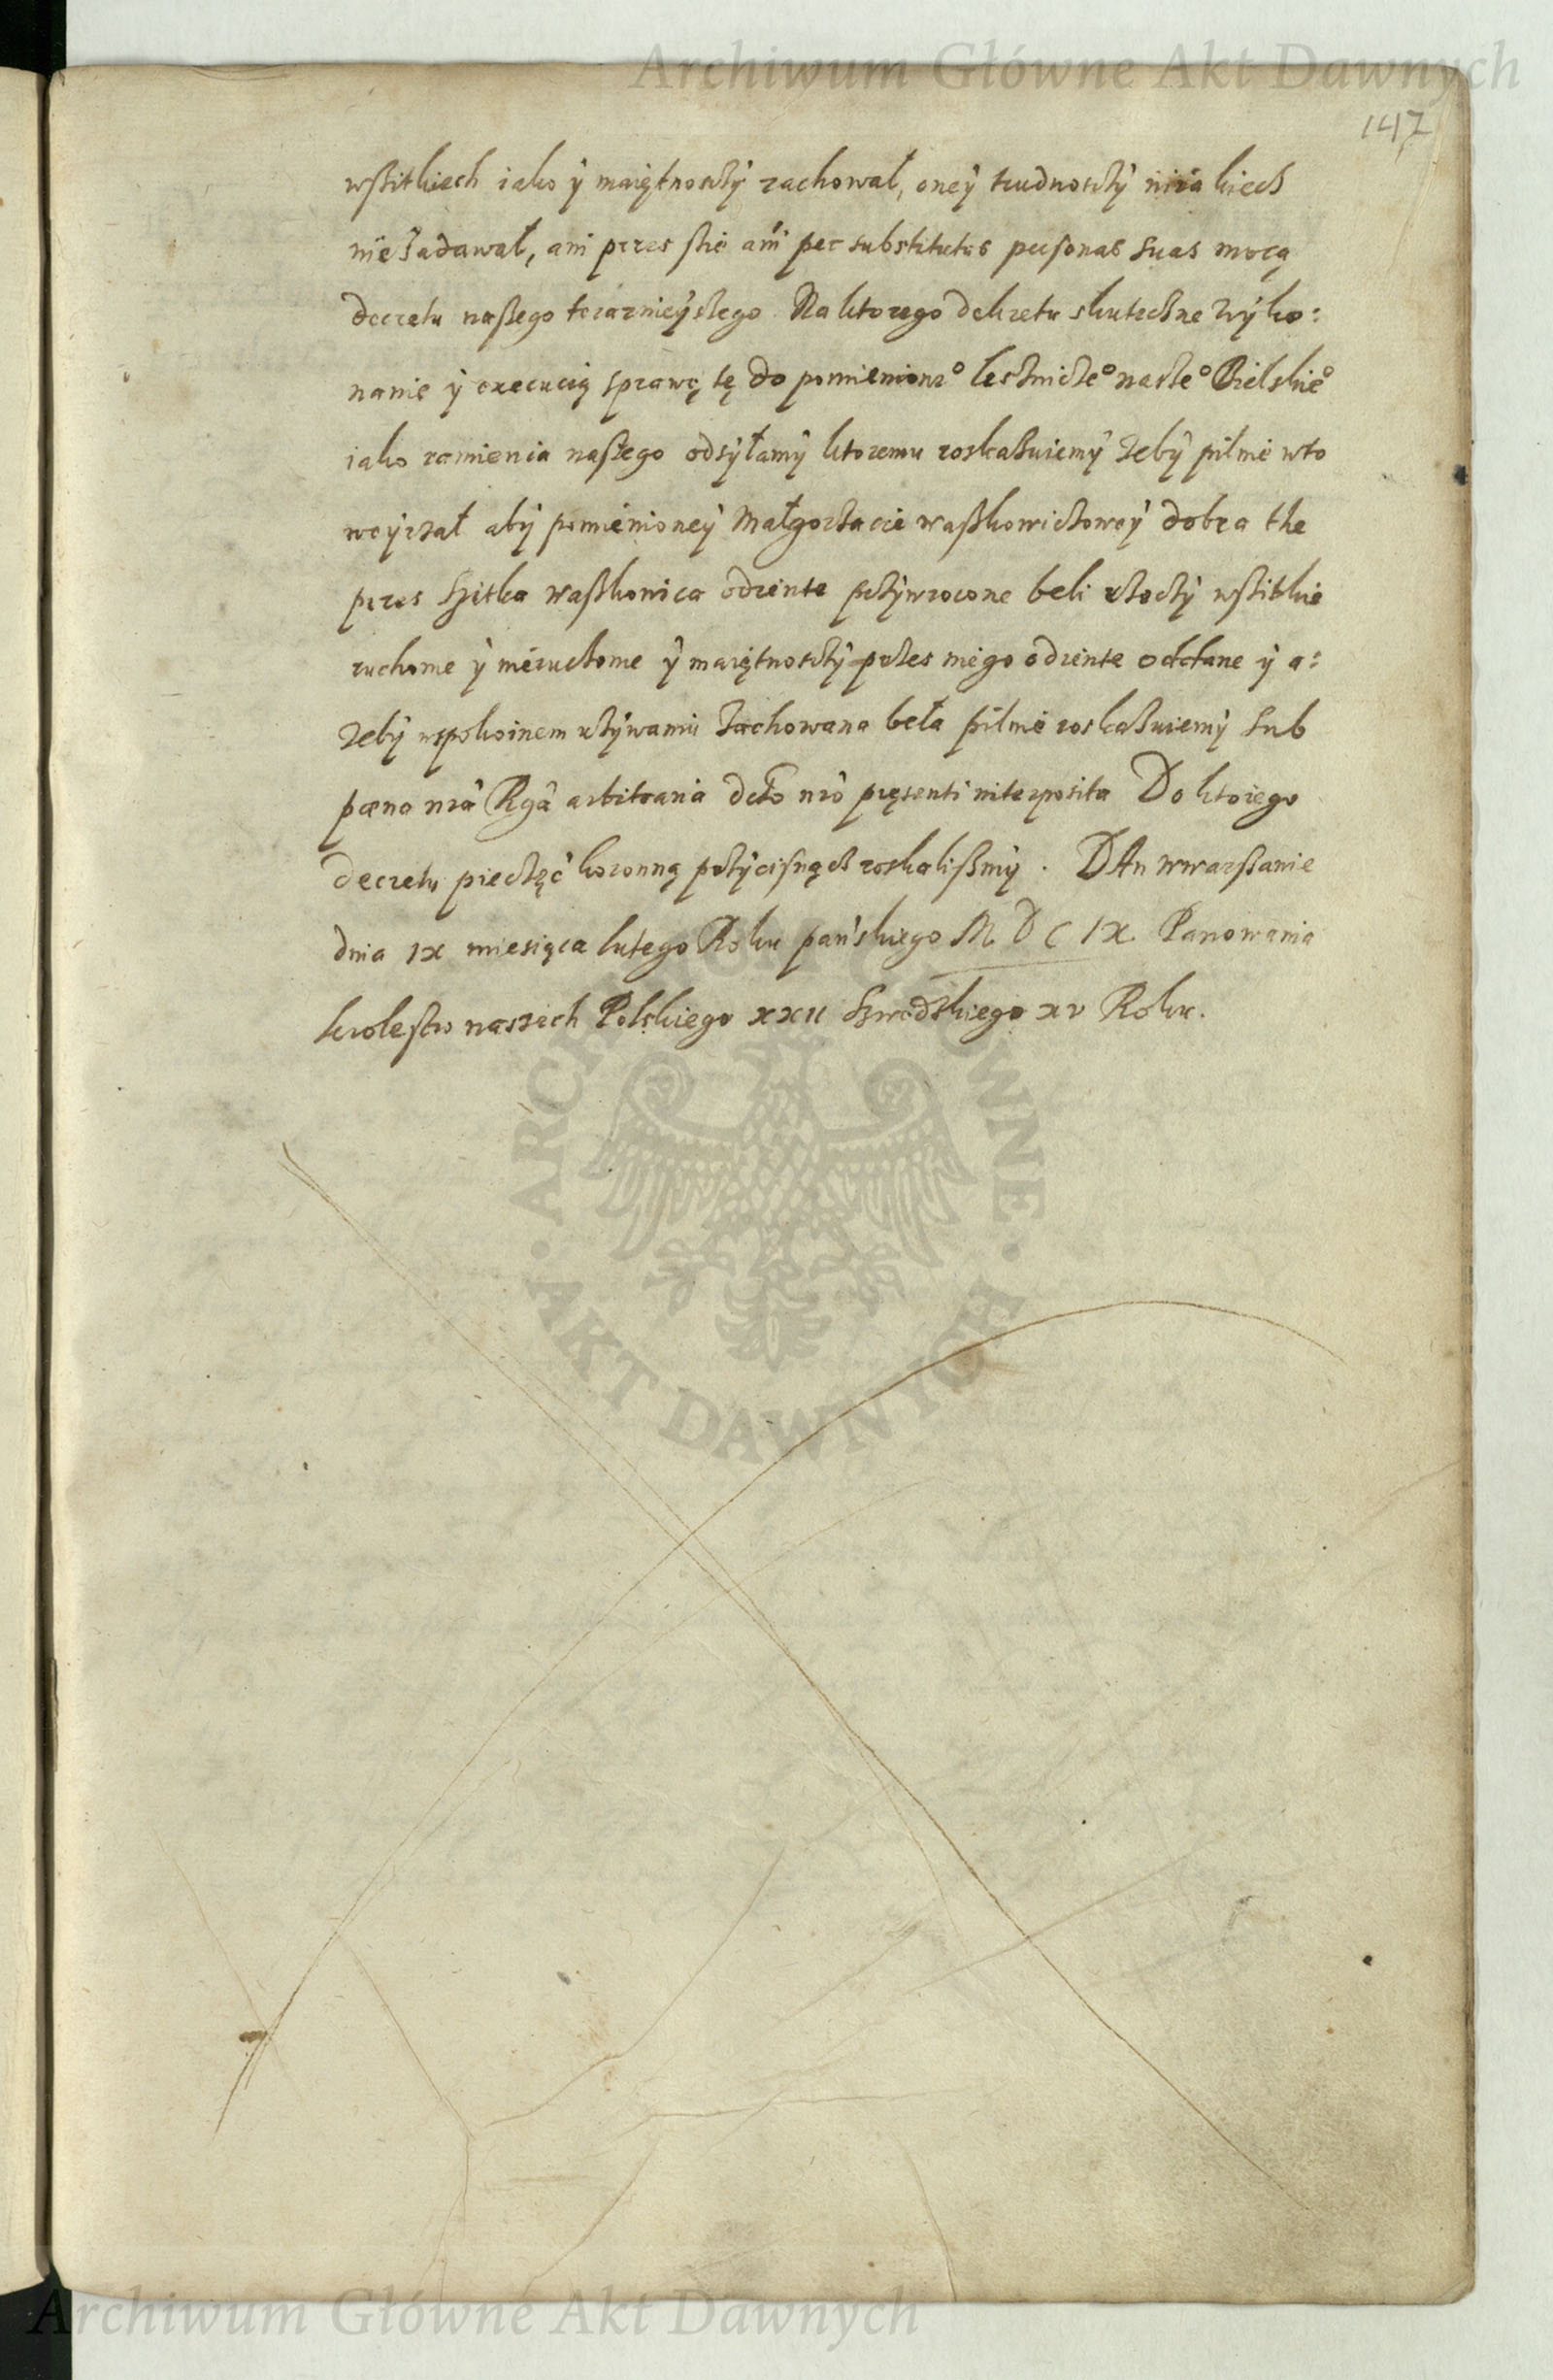 Archiwum Główne Akt Dawnych
147
wszitkiech iako ÿ maiętnosczÿ zachował, oneÿ trudnosczÿ niiakiech
nie zadawał, ani przes szie ani per substitutas personas suas mocą
decretu naszego teraznieÿszego. Na ktorego dekretu skuteczne wÿko:
nanie ÿ execucią sprawę tę do pomienionᵒ Lesniczeᵒ naszeᵒ Bielskieᵒ
iako ramienia naszego odsÿłamÿ ktoremu roskazuiemÿ zebÿ pilnie wto
weÿrzał abÿ pomienioneÿ Małgorzacie waszkowiczoweÿ dobra the
przes Szitka waszkowica odzente przÿwrocone beli rzeczÿ wszitkie
ruchome ÿ nieruchome ÿ maiętnosczÿ przes niego odzente oddane ÿ a:
zebÿ wspokoinem uzÿwaniu zachowana beła pilnie roskazuiemÿ sub
pæna nrâ Rgâ arbitraria dcto nrô pręsenti interposita Do ktorego
decretu pieczęć koronną przÿcisnącz roskaliszmÿ. DAn wwarszawie
dnia IX miesiąca lutego Roku pańskiego M D C IX. Panowania
krolestw naszech Polskiego XXII Szwedzkiego XV Roku.
ARCHIWUM GŁÓWNE · AKT DAWNYCH ·
Archiwum Główne Akt Dawnych